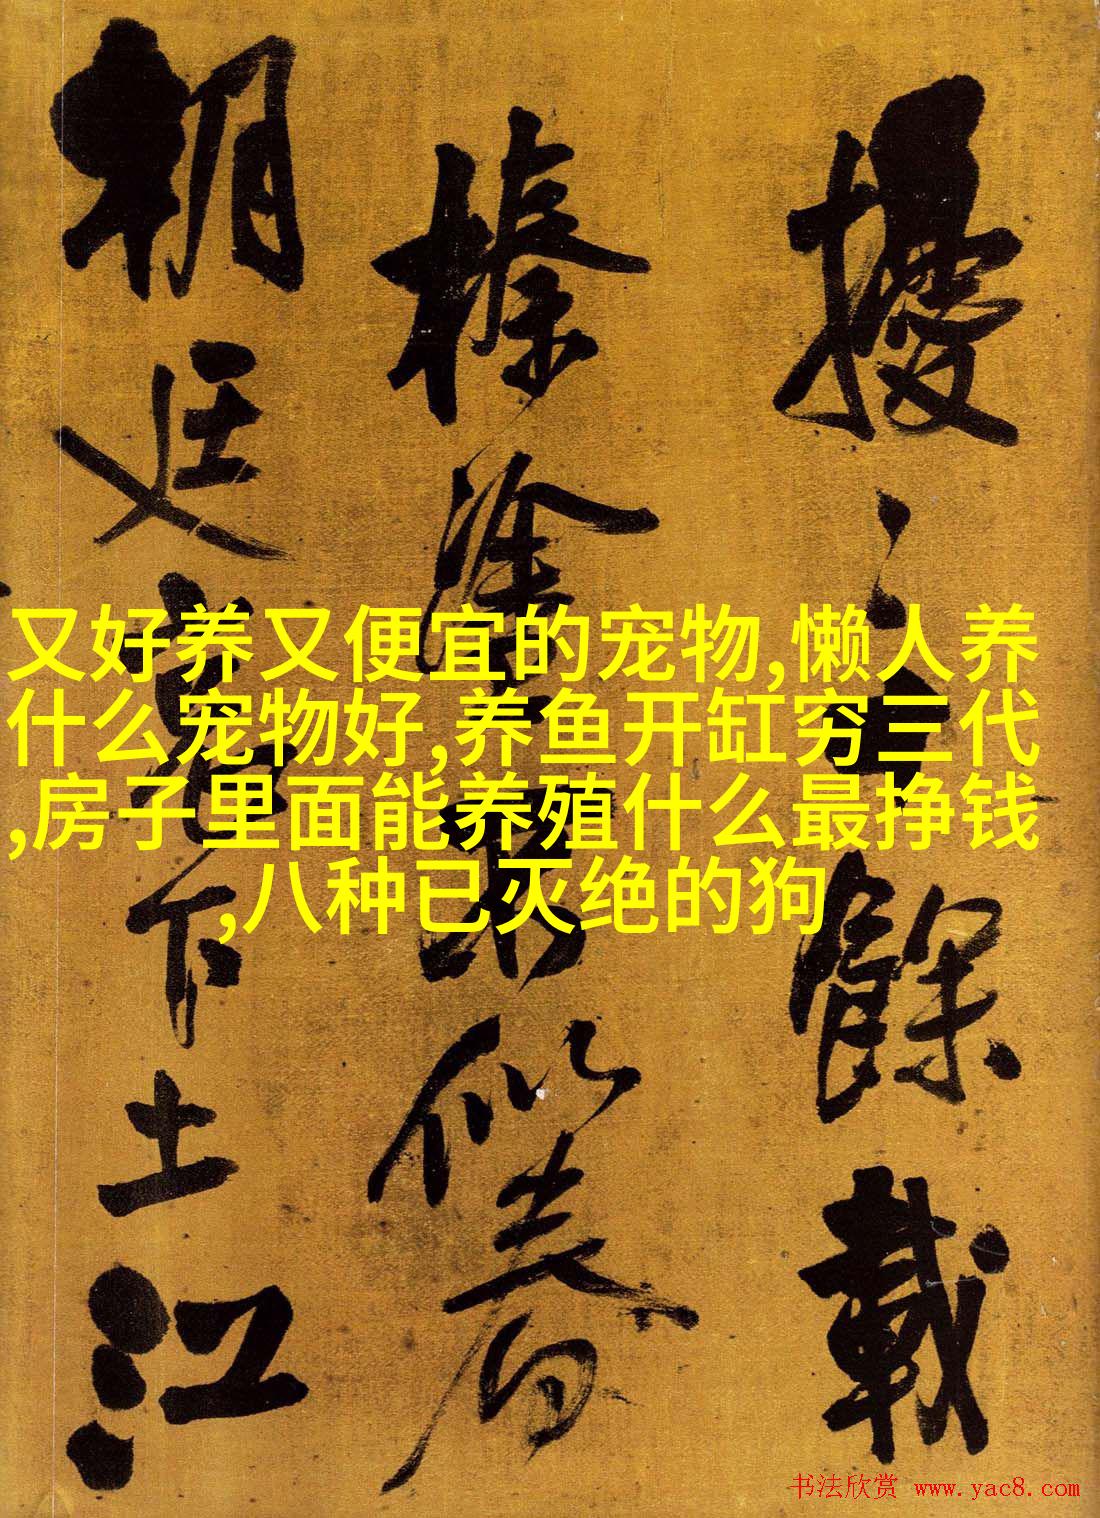 擾之餘載
榛塗
朝廷下土江
又好养又便宜的宠物,懒人养
什么宠物好,养鱼开缸穷三代
,房子里面能养殖什么最挣钱
,八种已灭绝的狗
书法欣赏 www.yac8.com